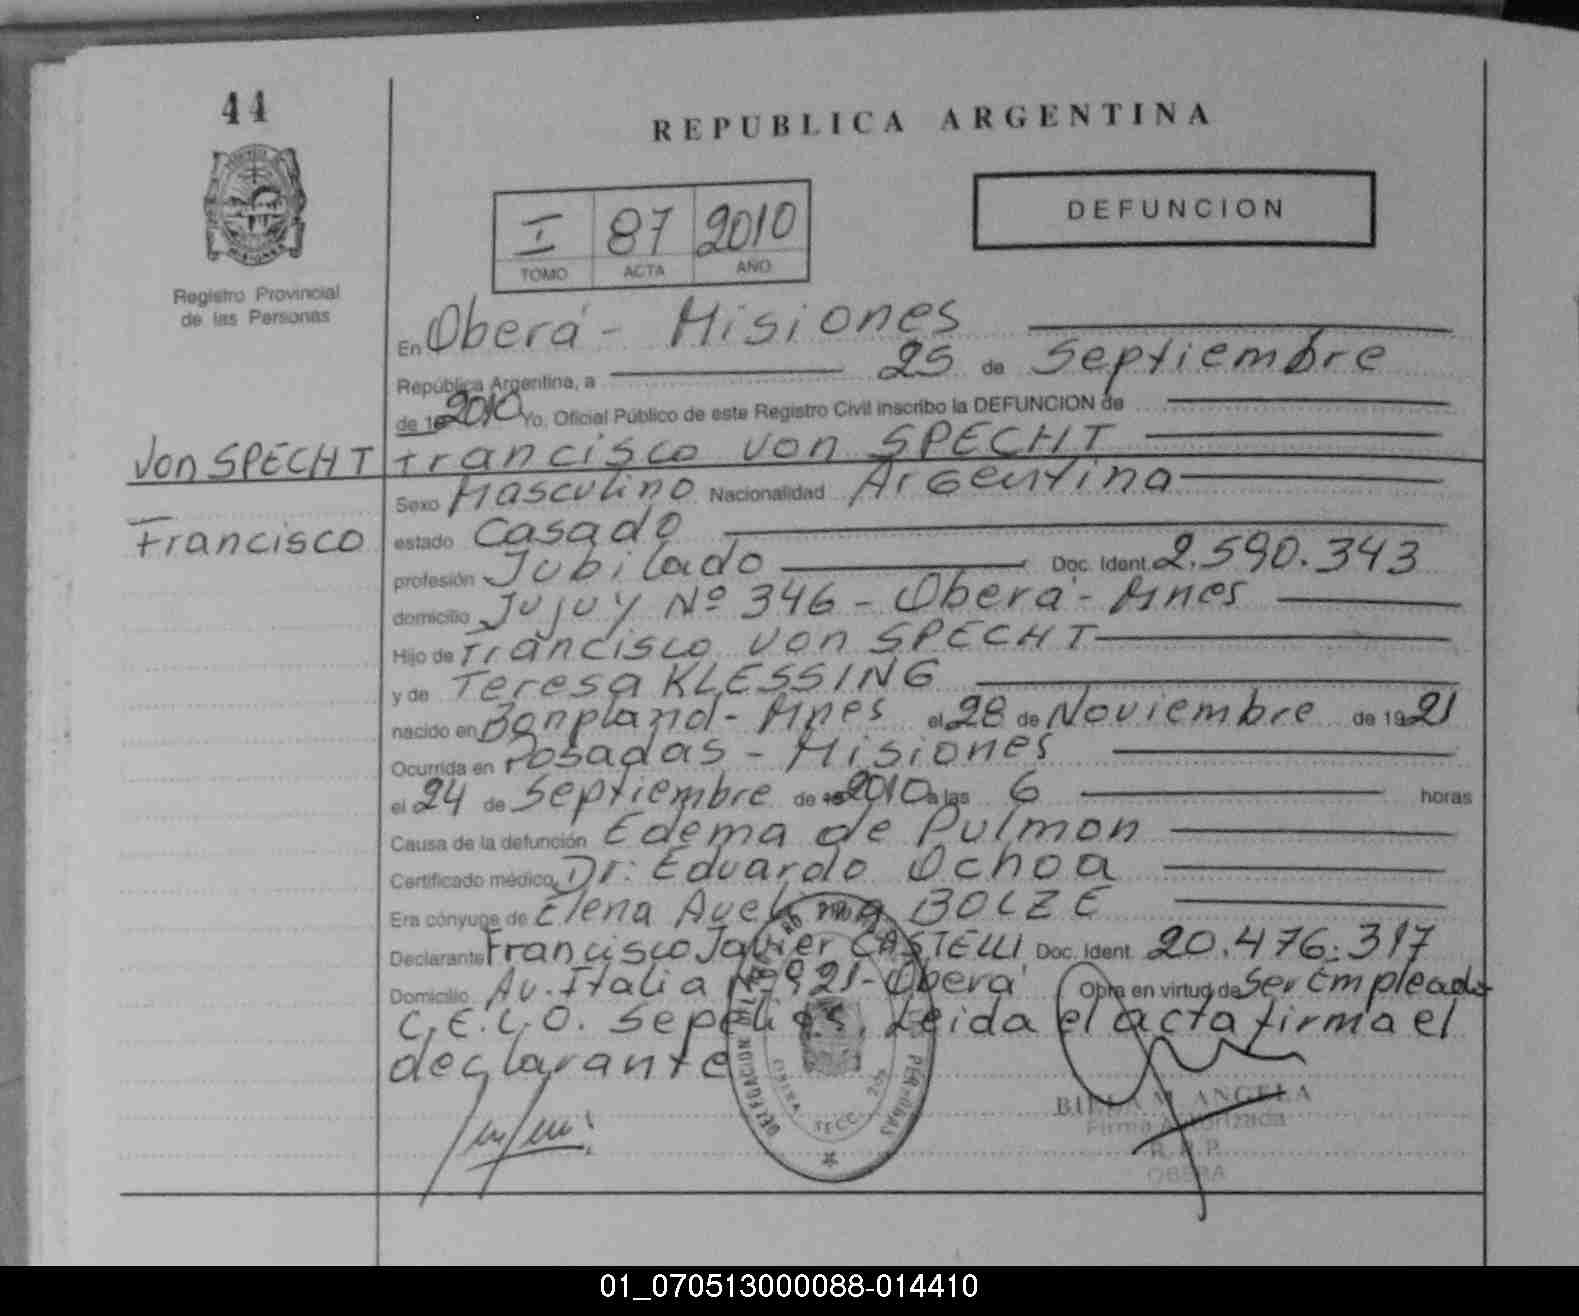 44
REPUBLICA ARGENTINA
DEFUNCION
I 87 2010
TOMO ACTA AÑO
Registro Provincial
de las Personas
En Oberá - Misiones
República Argentina, a 25 de Septiembre
de 19 2010 Yo, Oficial Público de este Registro Civil inscribo la DEFUNCION de
Von SPECHT Francisco von SPECHT
Sexo Masculino Nacionalidad Argentina
Francisco estado Casado
profesión Jubilado Doc. Ident. 2.590.343
domicilio Jujuy Nº 346 - Oberá - Mnes
Hijo de Francisco von SPECHT
y de Teresa KLESSING
nacido en Bonpland - Mnes el 28 de Noviembre de 1921
Ocurrida en Posadas - Misiones
el 24 de Septiembre de 2010 a las 6 horas
Causa de la defunción Edema de Pulmon
Certificado médico Dr: Eduardo Ochoa
Era cónyuge de Elena Avelina BOLZE
Declarante Francisco Javier CASTELLI Doc. Ident. 20.476.317
Domicilio Av. Italia Nº 921 - Oberá Obra en virtud de Ser Empleado
C.E.L.O. Sepelios. Leida el acta firma el
declarante
DELEGACION
PERSONAS
OBERA SECC.
M. ANGELA
Firma Autorizada
R. P. P.
OBERA
01_070513000088-014410